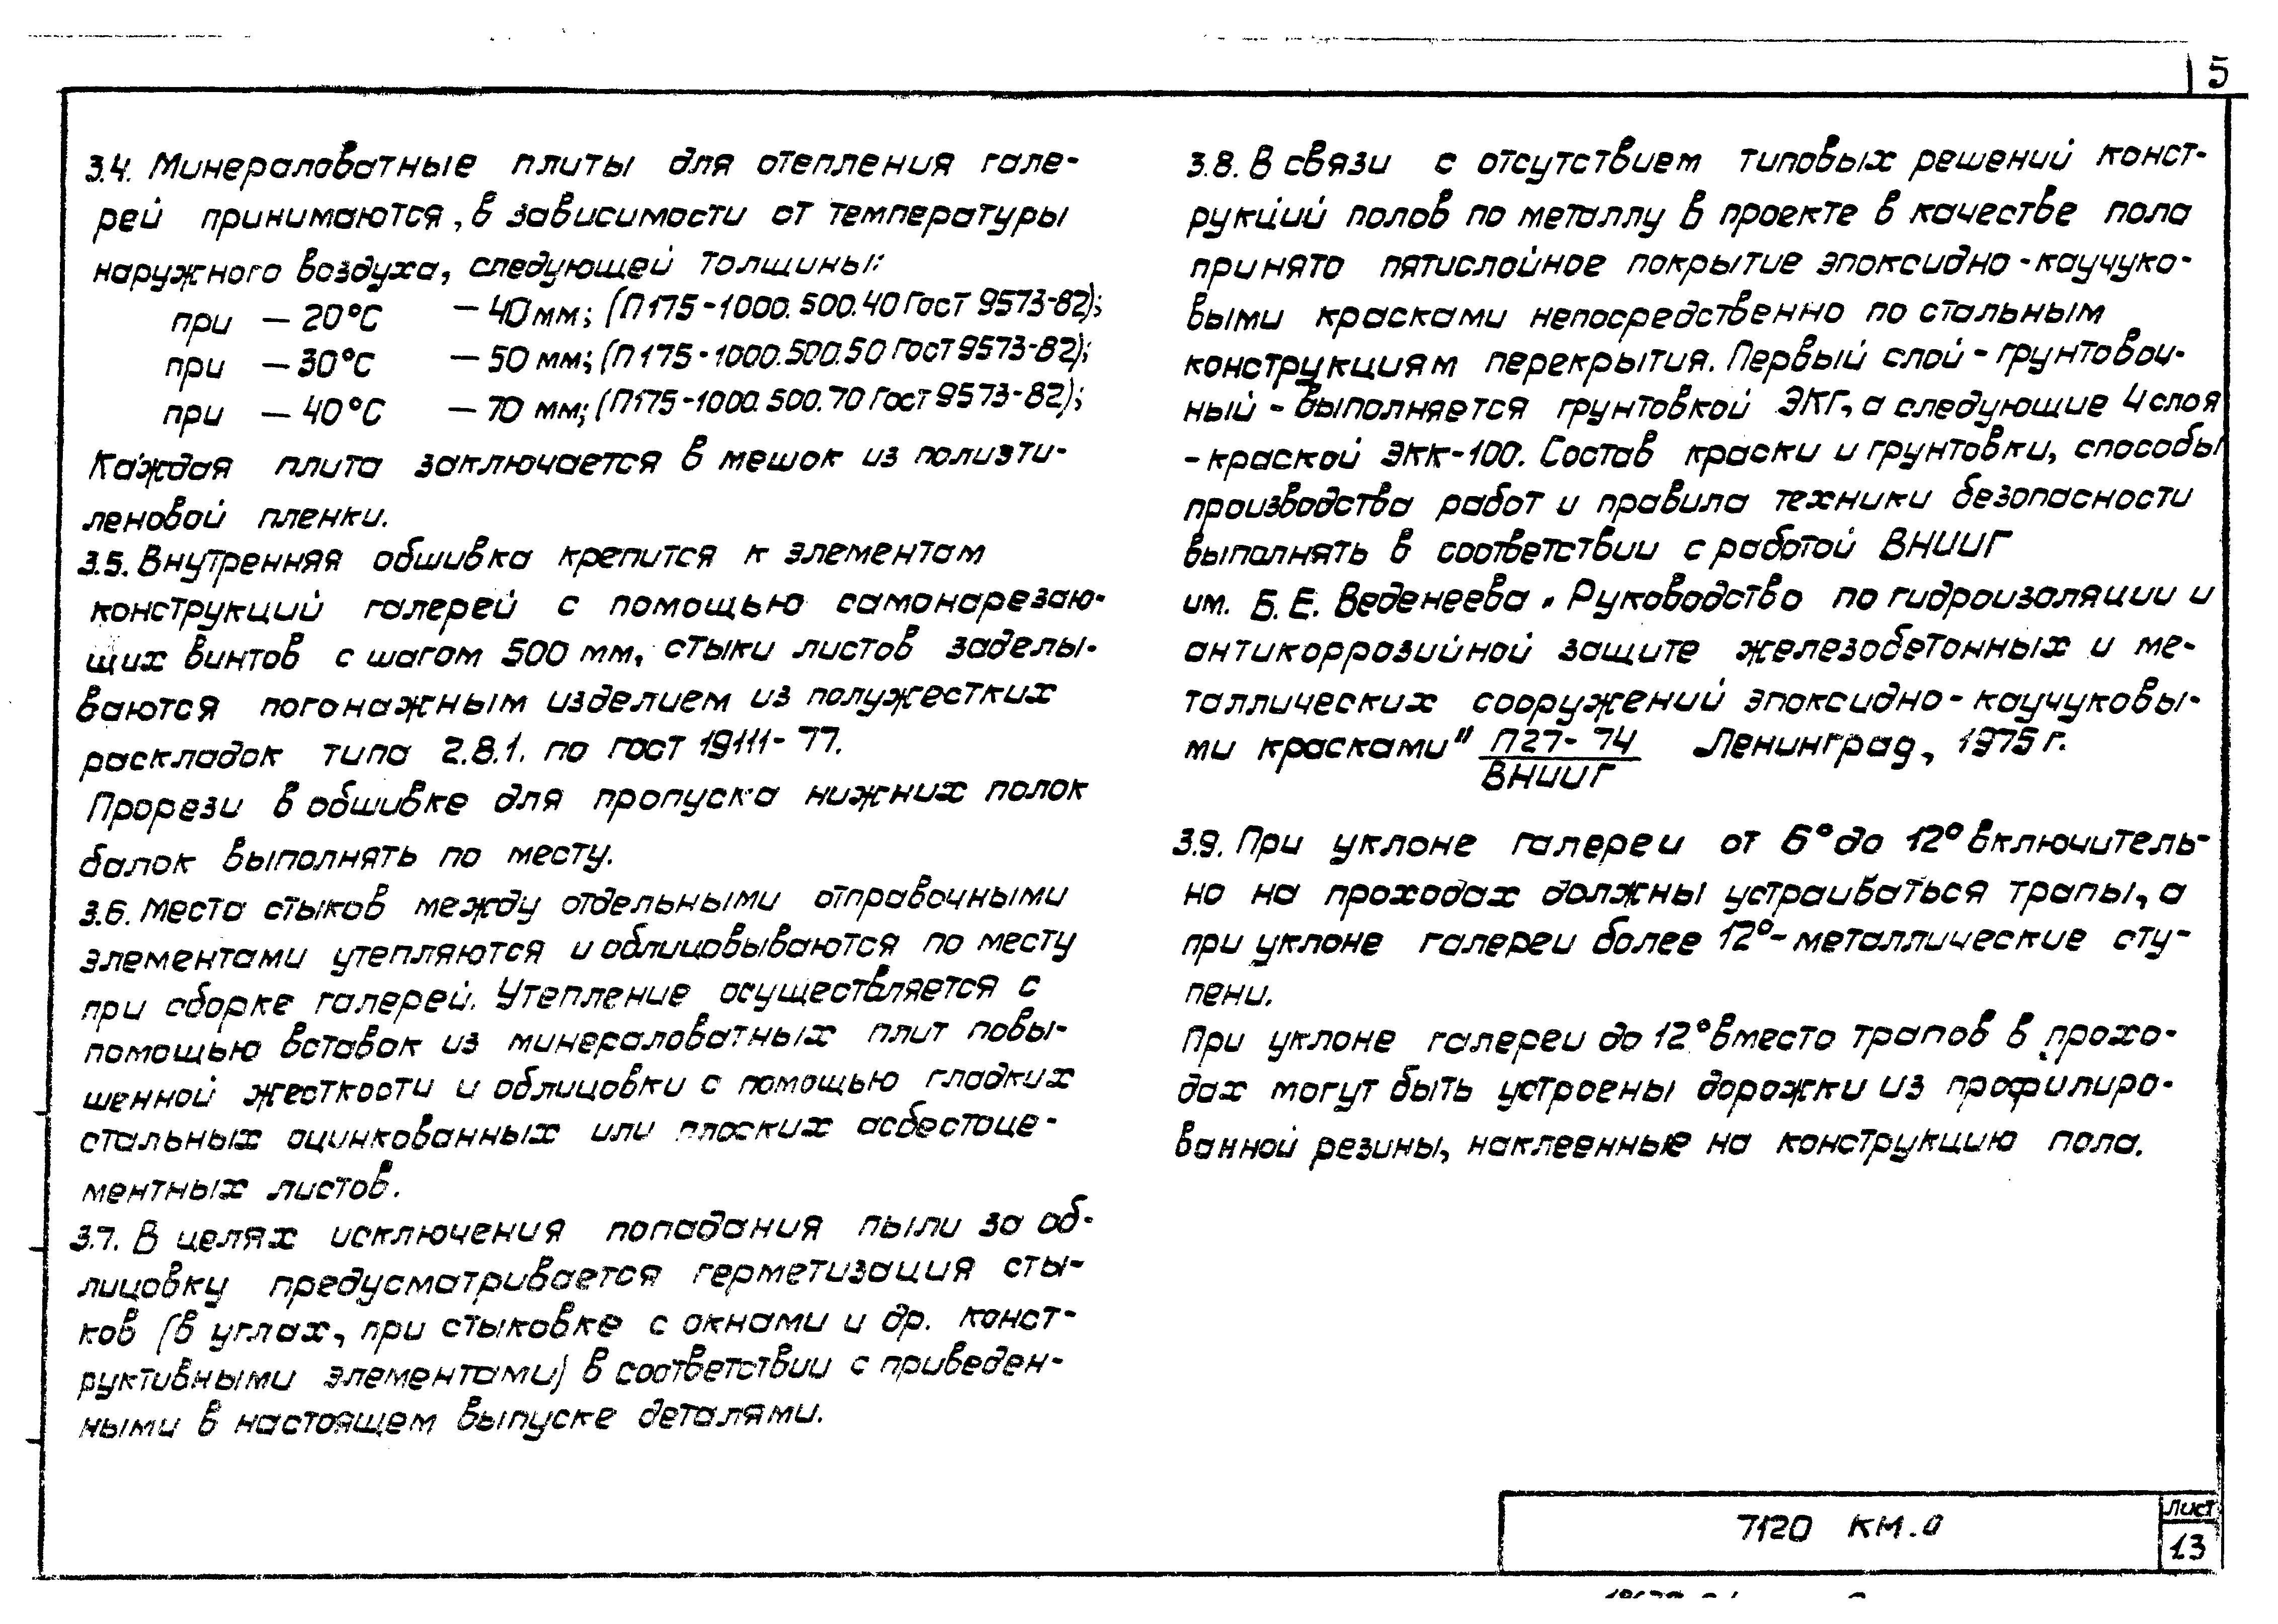 5
3.4. Минераловатные плиты для отепления гале-
рей принимаются, в зависимости от температуры
наружного воздуха, следующей толщины:
при – 20°С – 40 мм; (П175-1000.500.40 ГОСТ 9573-82);
при – 30°С – 50 мм; (П175-1000.500.50 ГОСТ 9573-82);
при – 40°С – 70 мм; (П175-1000.500.70 ГОСТ 9573-82);
Каждая плита заключается в мешок из полиэти-
леновой пленки.
3.5. Внутренняя обшивка крепится к элементам
конструкций галерей с помощью самонарезаю-
щих винтов с шагом 500 мм, стыки листов заделы-
ваются погонажным изделием из полужестких
раскладок типа 2.8.1. по ГОСТ 19111-77.
Прорези в обшивке для пропуска нижних полок
балок выполнять по месту.
3.6. Места стыков между отдельными отправочными
элементами утепляются и облицовываются по месту
при сборке галерей. Утепление осуществляется с
помощью вставок из минераловатных плит повы-
шенной жесткости и облицовки с помощью гладких
стальных оцинкованных или плоских асбестоце-
ментных листов.
3.7. В целях исключения попадания пыли за об-
лицовку предусматривается герметизация сты-
ков (в углах, при стыковке с окнами и др. конст-
руктивными элементами) в соответствии с приведен-
ными в настоящем выпуске деталями.
3.8. В связи с отсутствием типовых решений конст-
рукций полов по металлу в проекте в качестве пола
принято пятислойное покрытие эпоксидно-каучуко-
выми красками непосредственно по стальным
конструкциям перекрытия. Первый слой - грунтовоч-
ный - выполняется грунтовкой ЭКГ, а следующие 4 слоя
- краской ЭКК-100. Состав краски и грунтовки, способы
производства работ и правила техники безопасности
выполнять в соответствии с работой ВНИИГ
им. Б.Е. Веденеева „Руководство по гидроизоляции и
антикоррозийной защите железобетонных и ме-
таллических сооружений эпоксидно-каучуковы-
ми красками" П27-74 Ленинград, 1975 г.
ВНИИГ
3.9. При уклоне галереи от 6° до 12° включитель-
но на проходах должны устраиваться трапы, а
при уклоне галереи более 12° - металлические сту-
пени.
При уклоне галереи до 12° вместо трапов в прохо-
дах могут быть устроены дорожки из профилиро-
ванной резины, наклеенные на конструкцию пола.
7120 КМ.0
Лист
13